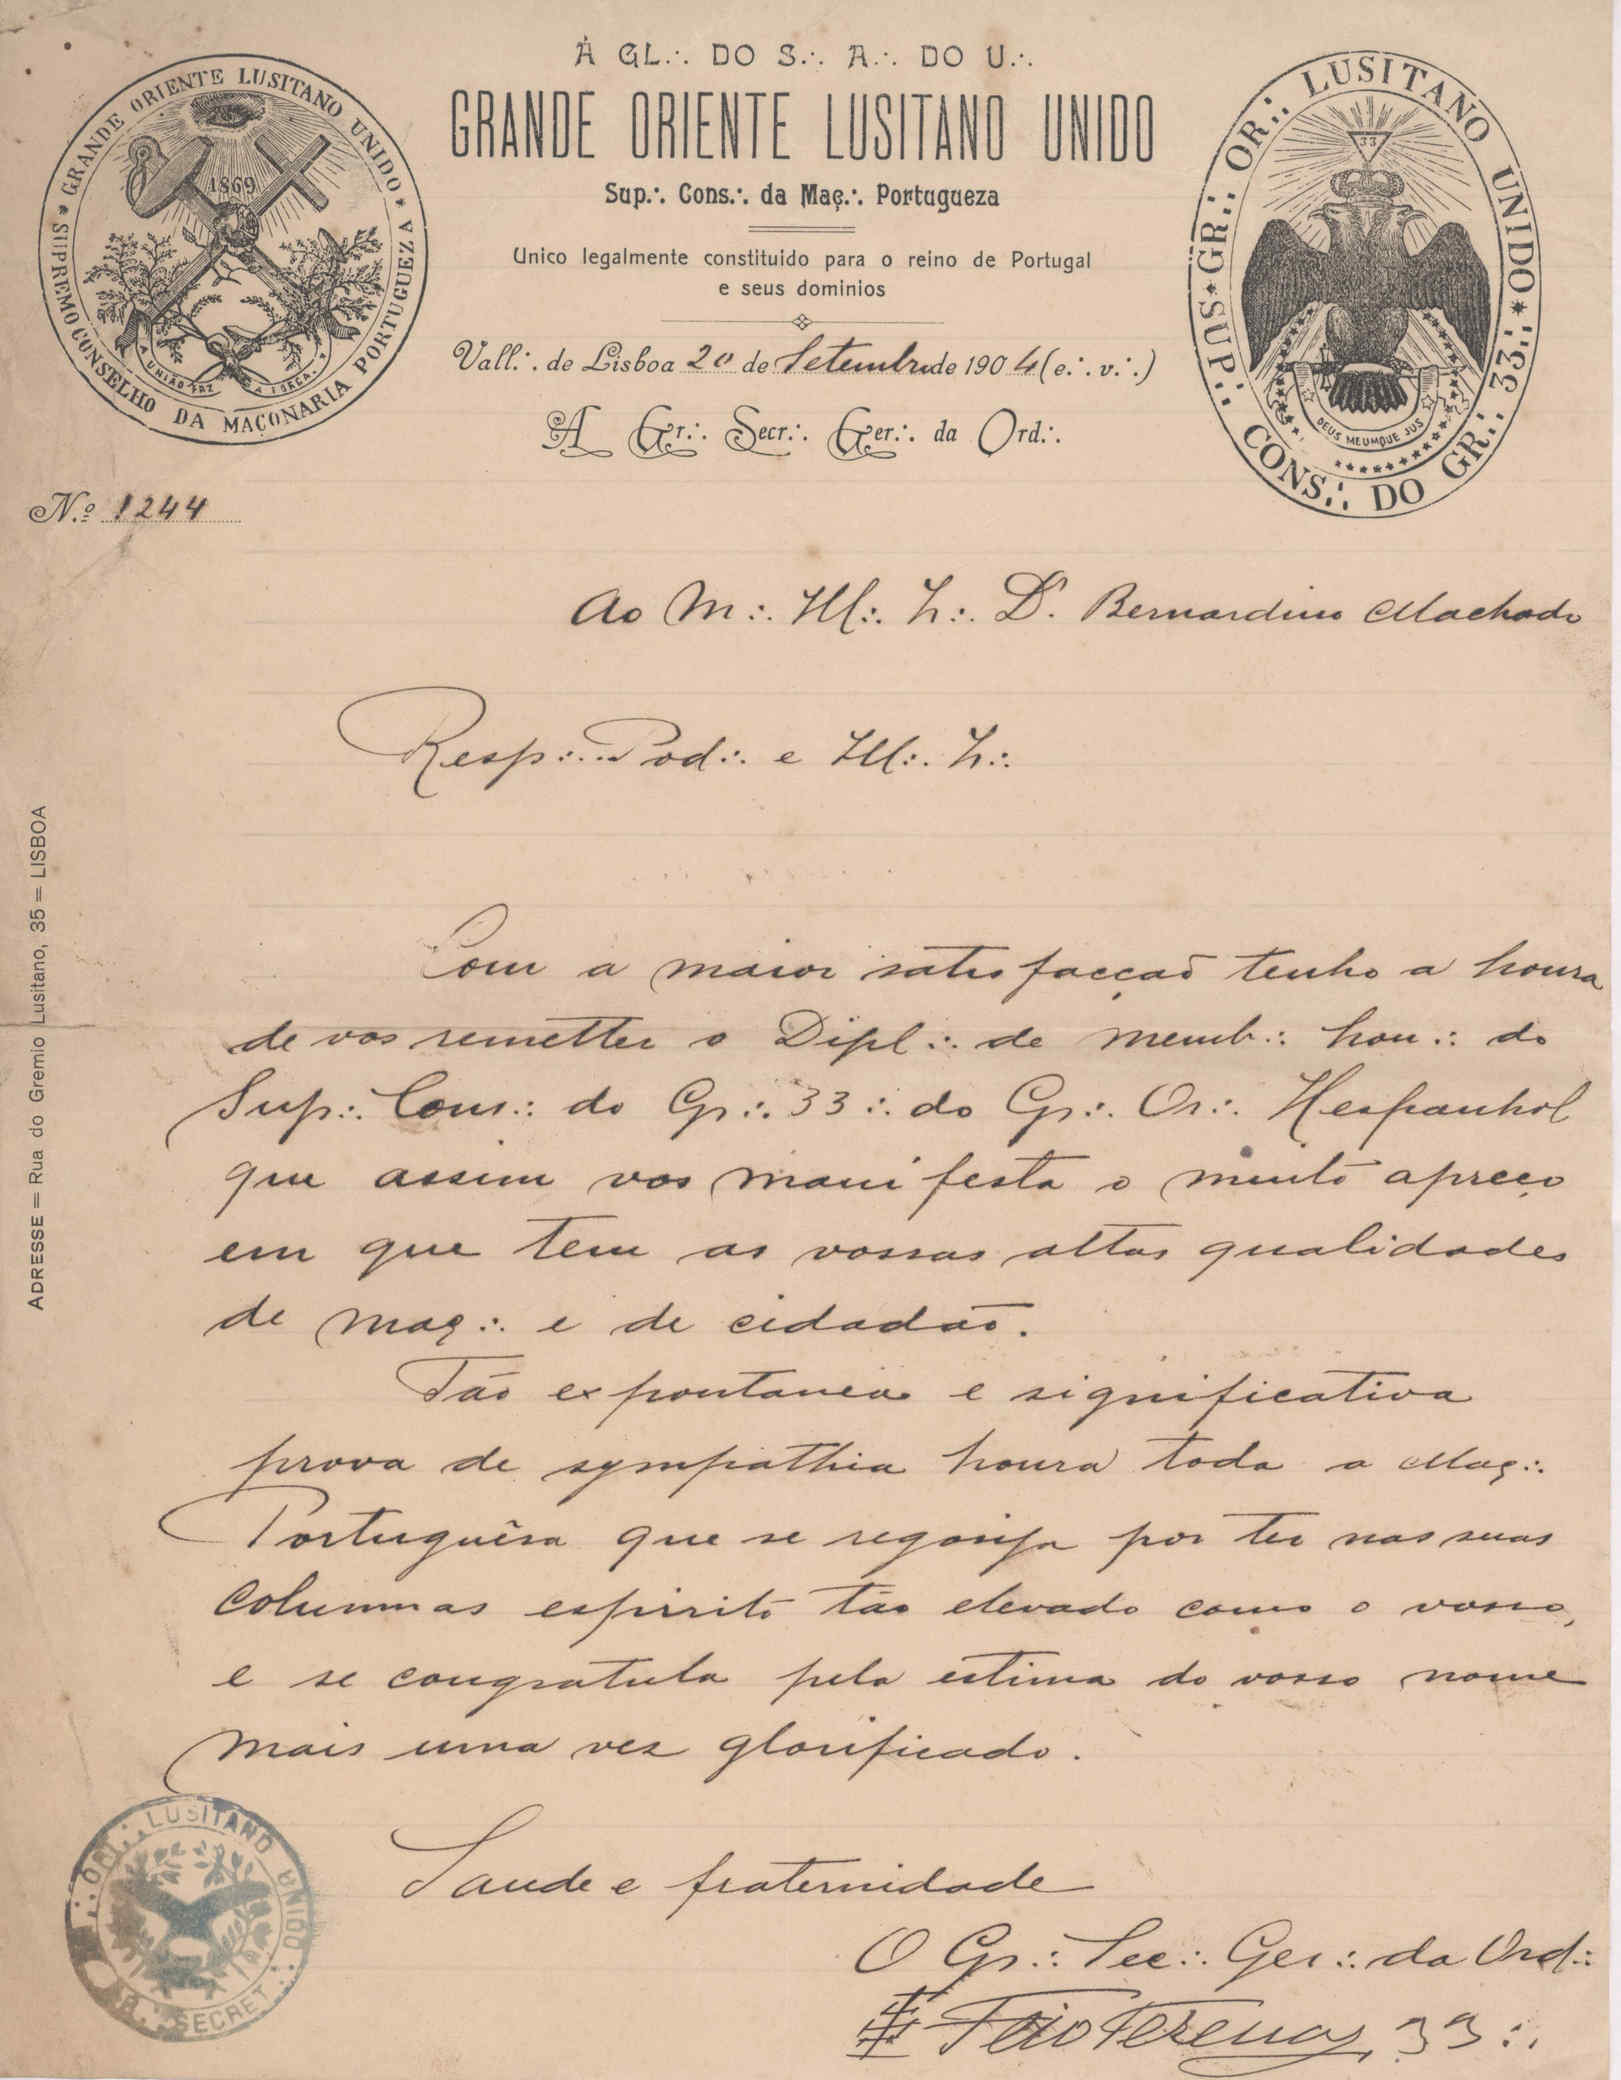 À GL∴ DO S∴ A∴ DO U∴
GRANDE ORIENTE LUSITANO UNIDO
Sup∴ Cons∴ da Maç∴ Portugueza
Unico legalmente constituido para o reino de Portugal
e seus dominios
Vall∴ de Lisboa 20 de Setembro de 1904 (e∴ v∴)
A Gr∴ Secr∴ Ger∴ da Ord∴
GRANDE ORIENTE LUSITANO UNIDO * SUPREMO CONSELHO DA MAÇONARIA PORTUGUEZA *
1869
A UNIÃO FAZ A FORÇA
SUP∴ CONS∴ DO GR∴ 33∴ * GR∴ OR∴ LUSITANO UNIDO *
33
DEUS MEUMQUE JUS
N.º 1244
Ao M∴ Ill∴ Ir∴ Dr. Bernardino Machado
Resp∴ Pod∴ e Ill∴ Ir∴
Com a maior satisfacção tenho a honra
de vos remetter o Dipl∴ de memb∴ hon∴ do
Sup∴ Cons∴ do Gr∴ 33∴ do Gr∴ Or∴ Hespanhol
que assim vos manifesta o muito apreço
em que tem as vossas altas qualidades
de maç∴ e de cidadão.
Tão expontanea e significativa
prova de sympathia honra toda a Maç∴
Portuguêsa que se regosija por ter nas suas
columnas espirito tão elevado como o vosso,
e se congratula pela estima do vosso nome
mais uma vez glorificado.
Saude e fraternidade
O Gr∴ Sec∴ Ger∴ da Ord∴
Feio Terenas, 33∴
ORI∴ LUSITANO UNIDO∴
SECRET
ADRESSE = Rua do Gremio Lusitano, 35 = LISBOA